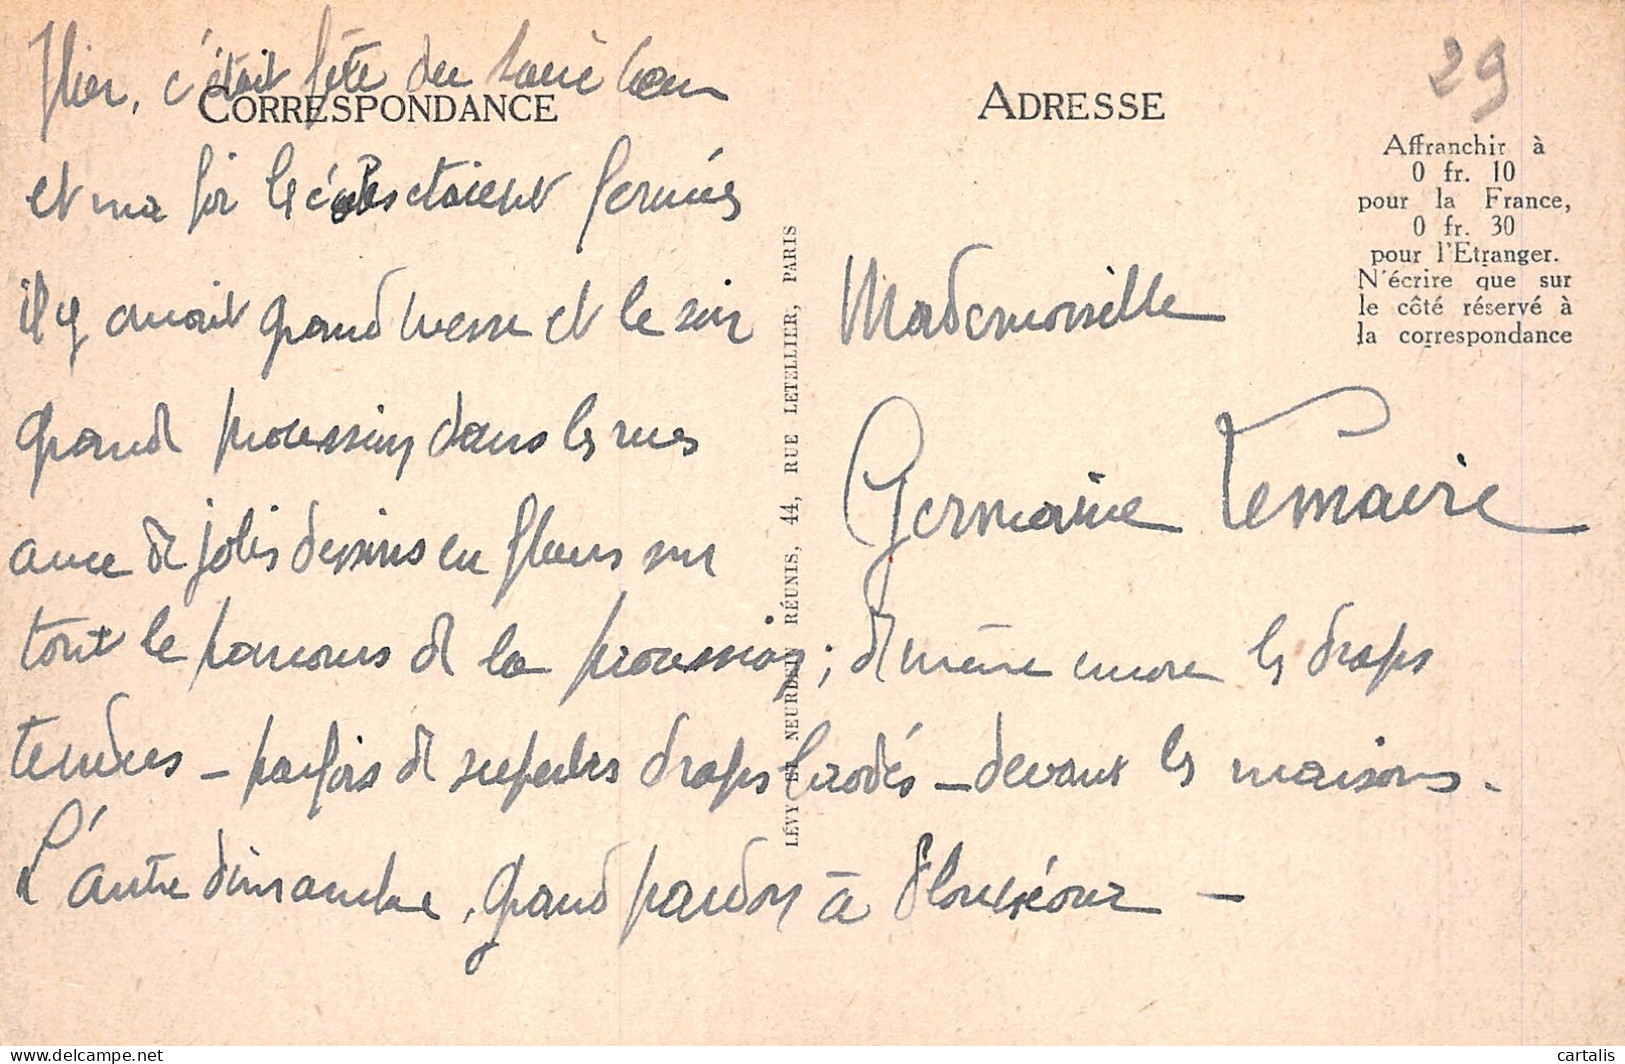 CORRESPONDANCE
ADRESSE
29
Affranchir à
0 fr. 10
pour la France,
0 fr. 30
pour l'Etranger.
N'écrire que sur
le côté réservé à
la correspondance
Hier, c'était fête du Sacré Cœur
et ma foi les écoles étaient fermées
il y avait grand messe et le soir
grand procession dans les rues
avec de jolis dessins en fleurs sur
tout le parcours de la procession ; de même encore les draps
tendues – parfois de superbes draps brodés – devant les maisons.
L'autre dimanche, grand pardon à
Mademoiselle
Germaine Lemaire
LÉVY ET NEURDEIN RÉUNIS, 44, RUE LETELLIER, PARIS
cartalis